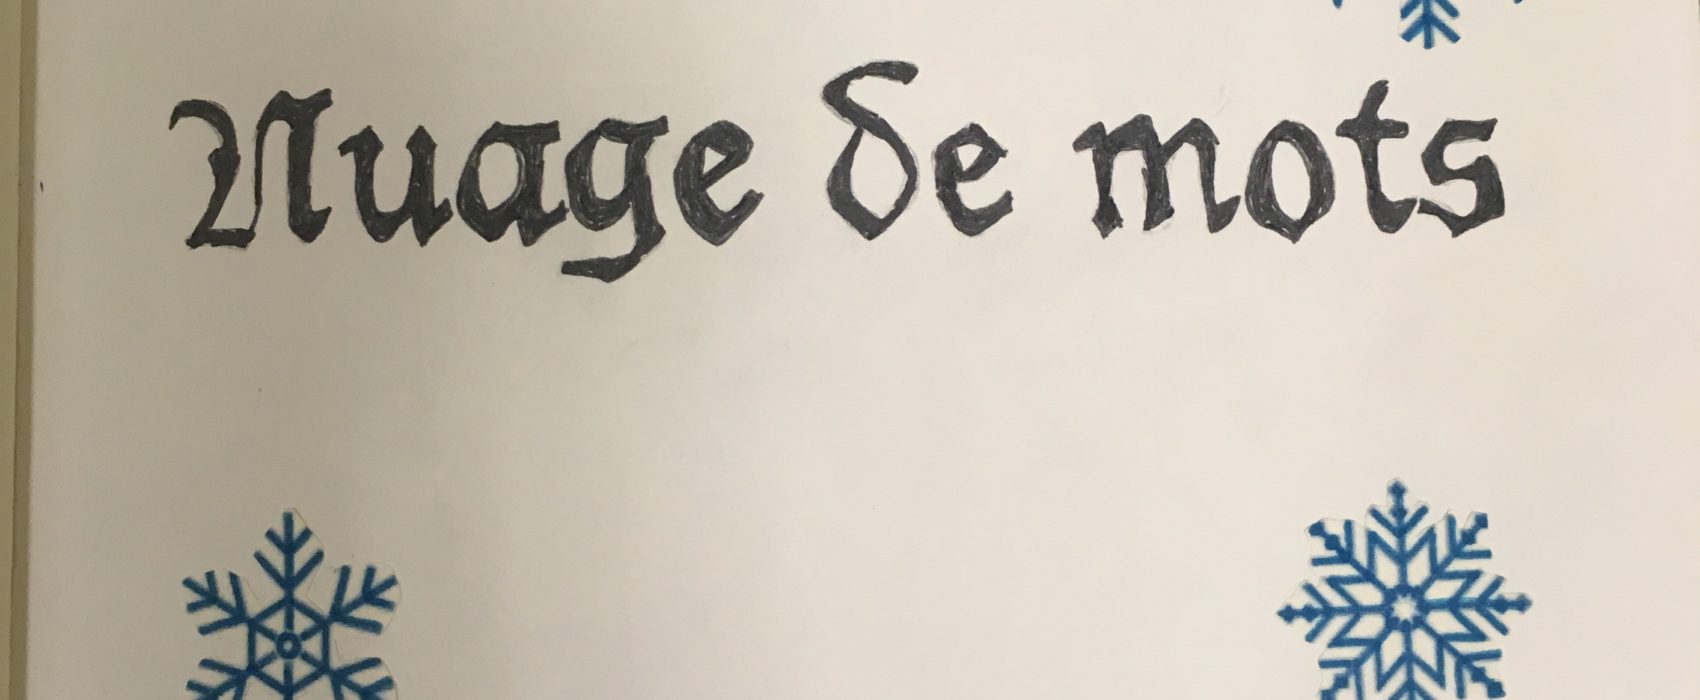 Nuage de mots